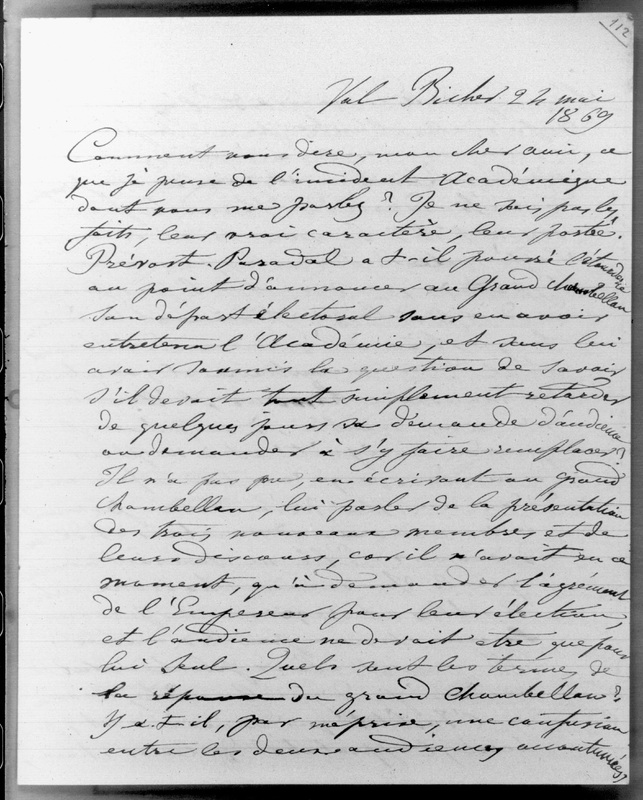 112
Val Richer 24 mai
1869
Comment vous dire, mon cher ami, ce
que je pense de l'incident Académique
dont vous me parlez ? Je ne sais pas les
faits, leur vrai caractère, leur portée.
Prévost-Paradol a-t-il poussé
au point d'annoncer au Grand Chambellan
son départ électoral sans en avoir
entretenu l'Académie, et sans lui
avoir soumis la question de savoir
s'il devait tout simplement retarder
de quelques jours sa demande d'audience
ou demander à s'y faire remplacer ?
Il n'a pas pu, en écrivant au grand
Chambellan, lui parler de la présentation
des trois nouveaux membres et de
leurs discours, car il n'avait en ce
moment, qu'à demander l'agrément
de l'Empereur pour leur élection,
et l'audience ne devait etre que pour
lui seul. Quels sont les termes de
la réponse du grand Chambellan ?
Y a-t-il, par méprise, une confusion
entre les deux audiences accoutumées ?